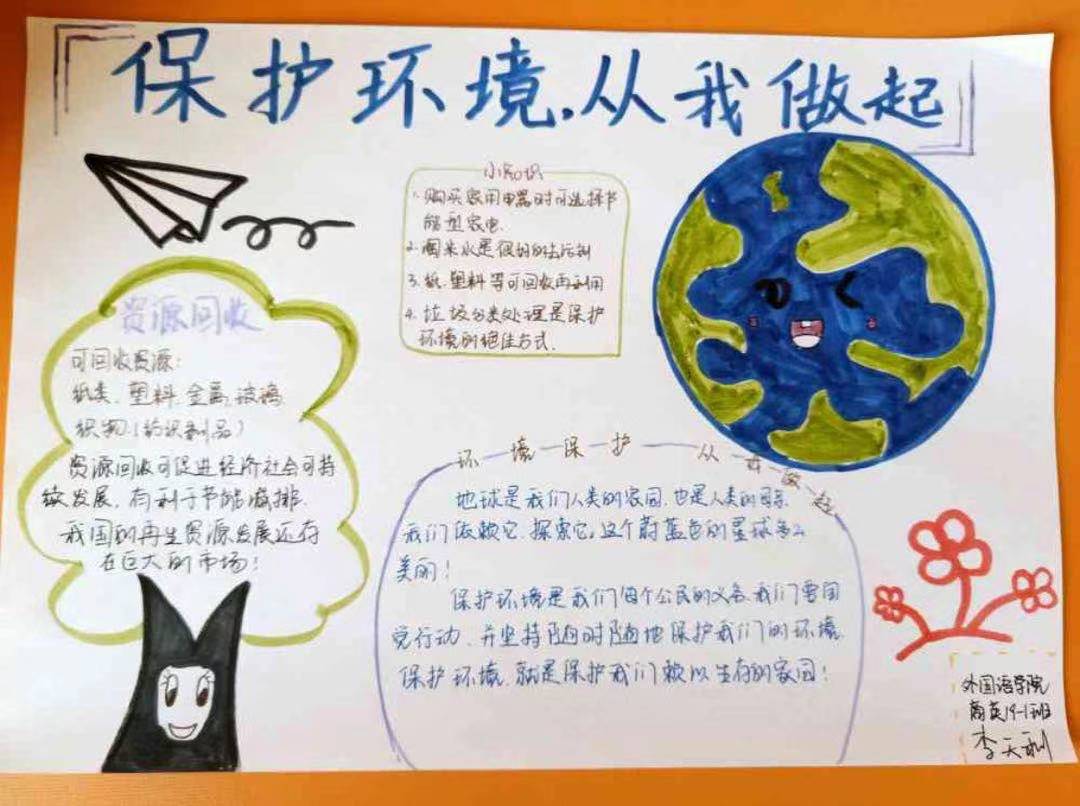 保护环境.从我做起
小知识
1.购买家用电器时可选择节
能型家电.
2.淘米水是很好的去污剂
3.纸.塑料等可回收再利用
4.垃圾分类处理是保护
环境的绝佳方式.
资源回收
可回收资源:
纸类、塑料、金属、玻璃
织物(纺织制品)
资源回收可促进经济社会可持
续发展,有利于节能减排.
我国的再生资源发展还存
在巨大的市场!
环境保护 从我做起
地球是我们人类的家园,也是人类的母亲
我们依赖它.探索它,这个蔚蓝色的星球多么
美丽!
保护环境是我们每个公民的义务,我们要用
行动、并坚持随时随地保护我们的环境.
保护环境、就是保护我们赖以生存的家园!
外国语学院
商英19-1班
李天利